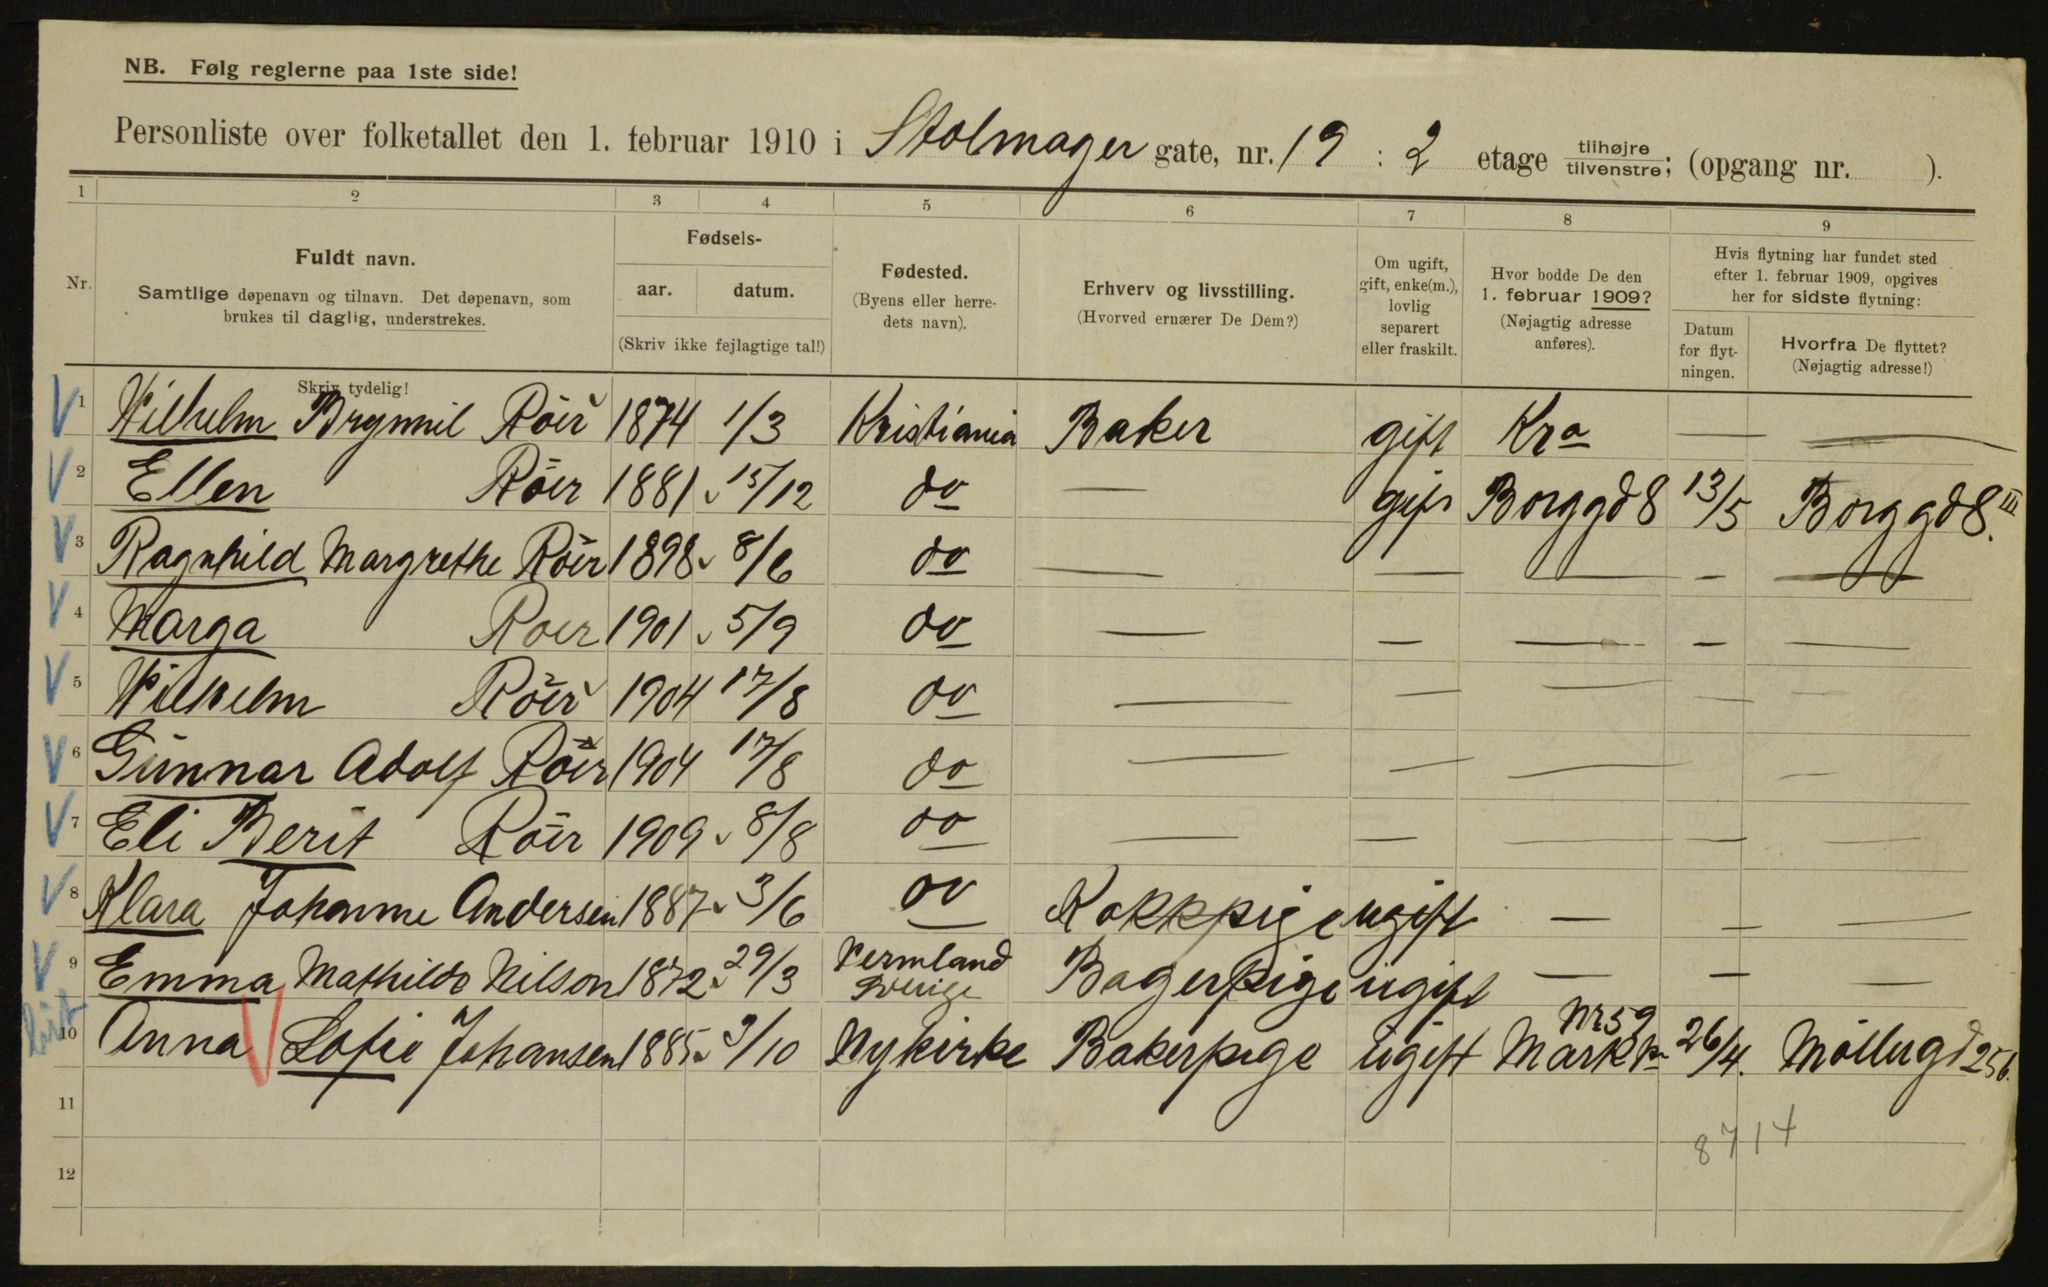 NB. Følg reglerne paa 1ste side!
Personliste over folketallet den 1. februar 1910 i Stolmager gate, nr. 19 : 2 etage tilhøjre/tilvenstre; (opgang nr. ).
1 2 3 4 5 6 7 8 9
Nr.
Fuldt navn.
Samtlige døpenavn og tilnavn. Det døpenavn, som
brukes til daglig, understrekes.
Skriv tydelig!
Fødsels-
aar. datum.
(Skriv ikke fejlagtige tal!)
Fødested.
(Byens eller herre-
dets navn).
Erhverv og livsstilling.
(Hvorved ernærer De Dem?)
Om ugift,
gift, enke(m.),
lovlig
separert
eller fraskilt.
Hvor bodde De den
1. februar 1909?
(Nøjagtig adresse
anføres).
Hvis flytning har fundet sted
efter 1. februar 1909, opgives
her for sidste flytning:
Datum
for flyt-
ningen.
Hvorfra De flyttet?
(Nøjagtig adresse!)
V 1 Wilhelm Brynnil Röir 1874 1/3 Kristiania Baker gift Kra — —
V 2 Ellen Röir 1881 15/12 do — gift Borggd 8 13/5 Borggd 8. III
V 3 Ragnhild Margrethe Röir 1898 8/6 do — — — — —
V 4 Marga Roir 1901 5/9 do — — — — —
V 5 Wilhelm Röir 1904 17/8 do — — — — —
V 6 Gunnar Adolf Röir 1904 17/8 do — — — — —
V 7 Eli Berit Röir 1909 8/8 do — — — — —
V 8 Klara Johanne Andersen 1887 3/6 do Kokkpige ugift — — —
V 9 Emma Mathilde Nilson 1872 29/3 Vermland Sverige Bagerpige ugift — — —
10 Anna V Sofie Johansen 1885 2/10 Nykirke Bakerpige ugift Markv Nr 59 26/4. Möllergd 25b.
11
8714
12